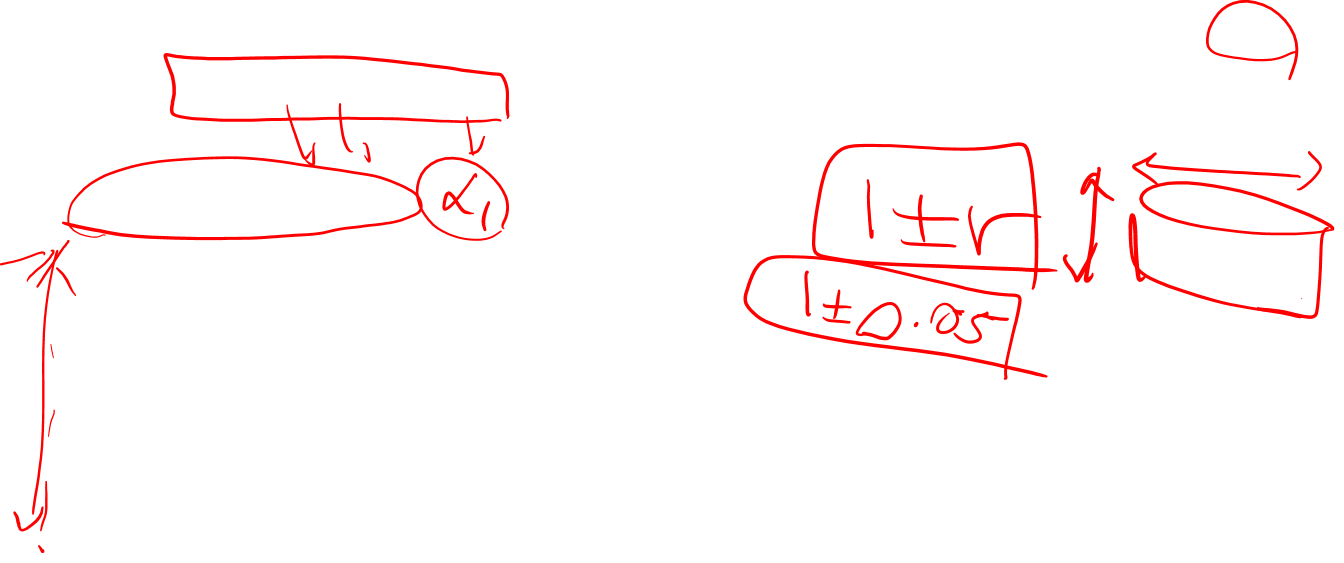 α₁
1 ± r
1 ± 0.05